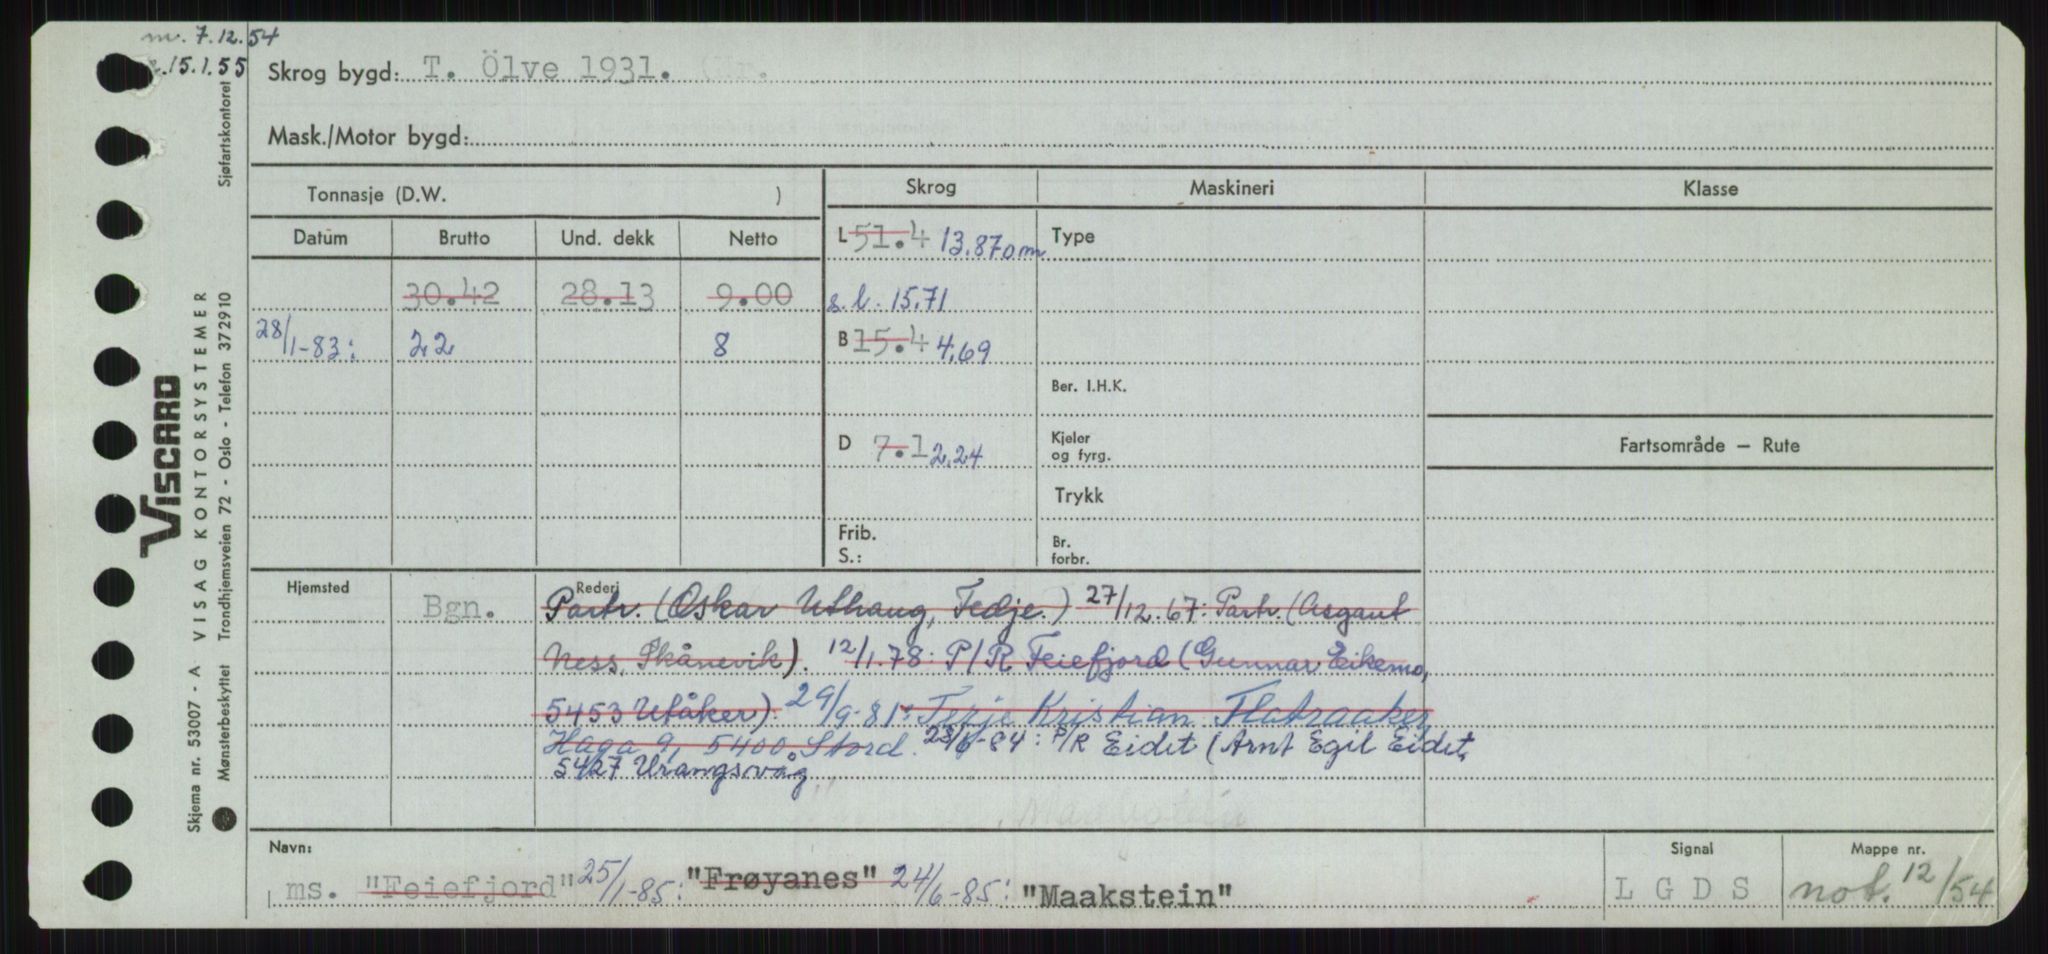 7.12.54
15.1.55
Skrog bygd: T. Ölve 1931.
Mask./Motor bygd:
Tonnasje (D.W. )
Skrog Maskineri Klasse
Datum Brutto Und. dekk Netto
L 51.4 13.870m Type
30.42 28.13 9.00 s.l. 15.71
28/1-83: 22 8 B 15.4 4,69
Ber. I.H.K.
D 7.1 2,24 Kjeler og fyrg.
Fartsområde – Rute
Trykk
Frib.
S.:
Br. forbr.
Hjemsted Rederi
Bgn. Partr. (Oskar Uthaug, Fedje.) 27/12.67: Partr. (Asgaut
Ness, Skånevik). 12/1.78: P/R Feiefjord (Gunnar Eikemo,
5453 Utåker). 29/9-81: Terje Kristian Flatraaker,
Haga 9, 5400 Stord. 28/6-84: P/R Eidet (Arnt Egil Eidet,
5427 Urangsvåg
Maakstein
Navn: Signal Mappe nr.
ms. "Feiefjord" 25/1-85: "Frøyanes" 24/6-85: "Maakstein" LGDS not. 12/54
Skjema nr. 53007 - A VISAG KONTORSYSTEMER
VISCARD
Mønsterbeskyttet Trondhjemsveien 72 - Oslo - Telefon 372910
Sjøfartskontoret